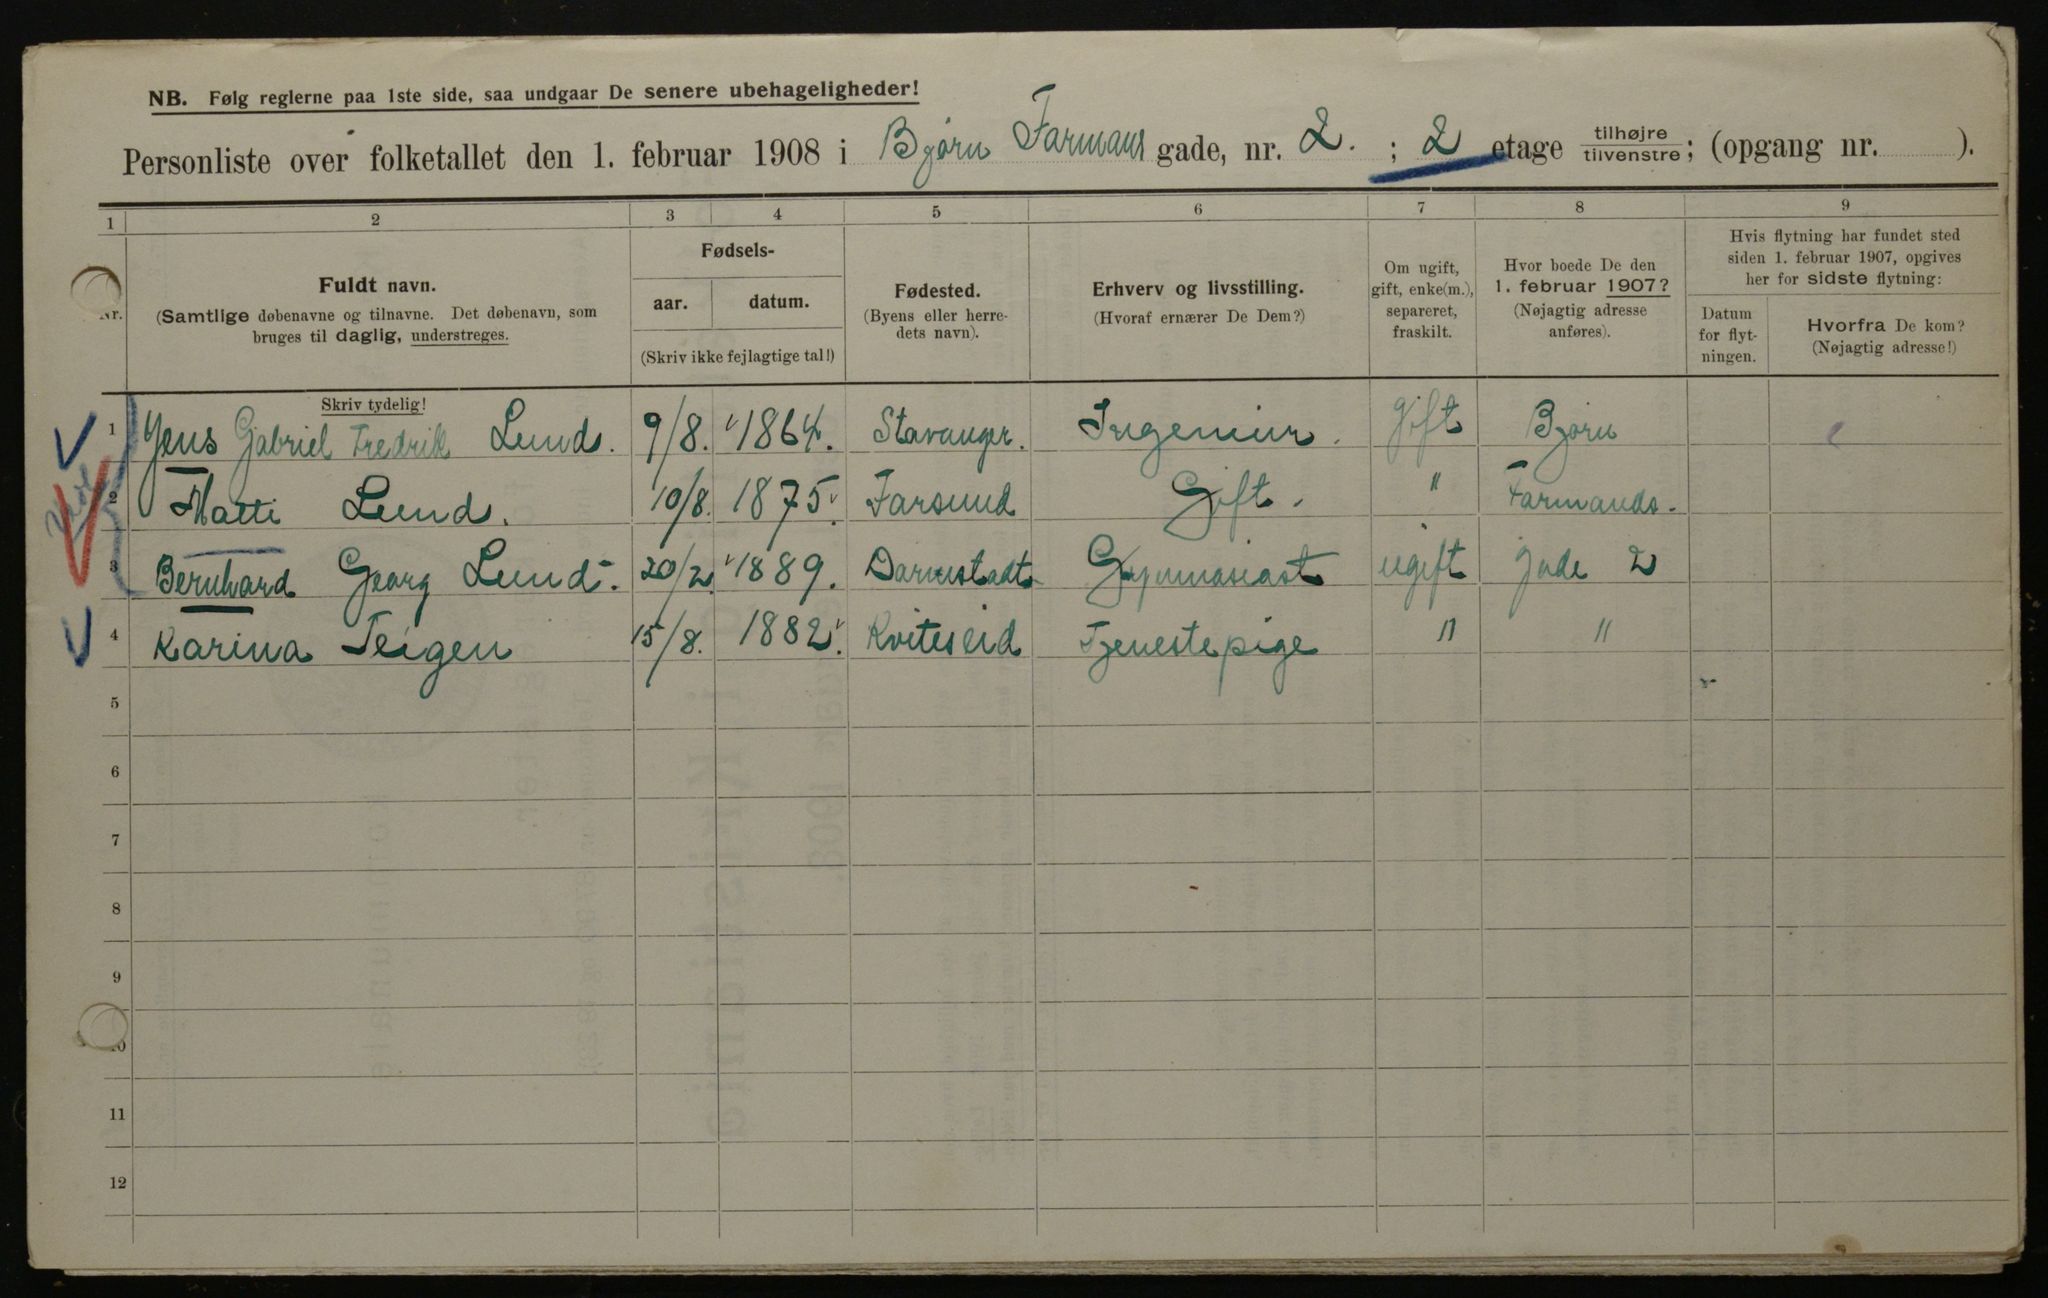 NB. Følg reglerne paa 1ste side, saa undgaar De senere ubehageligheder!
Personliste over folketallet den 1. februar 1908 i Bjørn Farmans gade, nr. 2. ; 2 etage tilhøjre/tilvenstre; (opgang nr. ).
1 2 3 4 5 6 7 8 9
Nr.
Fuldt navn.
(Samtlige døbenavne og tilnavne. Det døbenavn, som
bruges til daglig, understreges.
Skriv tydelig!
Fødsels-
aar. datum.
(Skriv ikke fejlagtige tal!)
Fødested.
(Byens eller herre-
dets navn).
Erhverv og livsstilling.
(Hvoraf ernærer De Dem?)
Om ugift,
gift, enke(m.),
separeret,
fraskilt.
Hvor boede De den
1. februar 1907?
(Nøjagtig adresse
anføres).
Hvis flytning har fundet sted
siden 1. februar 1907, opgives
her for sidste flytning:
Datum
for flyt-
ningen.
Hvorfra De kom?
(Nøjagtig adresse!)
1 Jens Gabriel Fredrik Lund. 9/8. 1864. Stavanger. Ingeniør. Gift Bjørn
2 Matti Lund. 10/8. 1875. Farsund Gift. " Farmands-
3 Bernhard Georg Lund. 20/2. 1889. Darmstadt Gymnasiast ugift gade 2
4 Karina Teigen 15/8. 1882. Kviteseid Tjenestepige " "
5
6
7
8
9
10
11
12